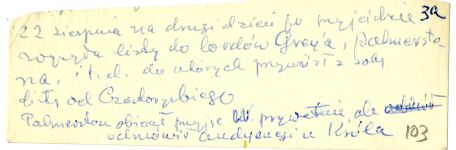 3a
22 sierpnia na drugi dzień po przyjeździe
wysyła listy do lordów Grey'a, Palmersto-
na, i t. d. do których przywiózł z sobą
listy od Czartoryskiego
Palmerston obiecał przyjąć prywatnie ale
odmówił audyencyi u Króla
103